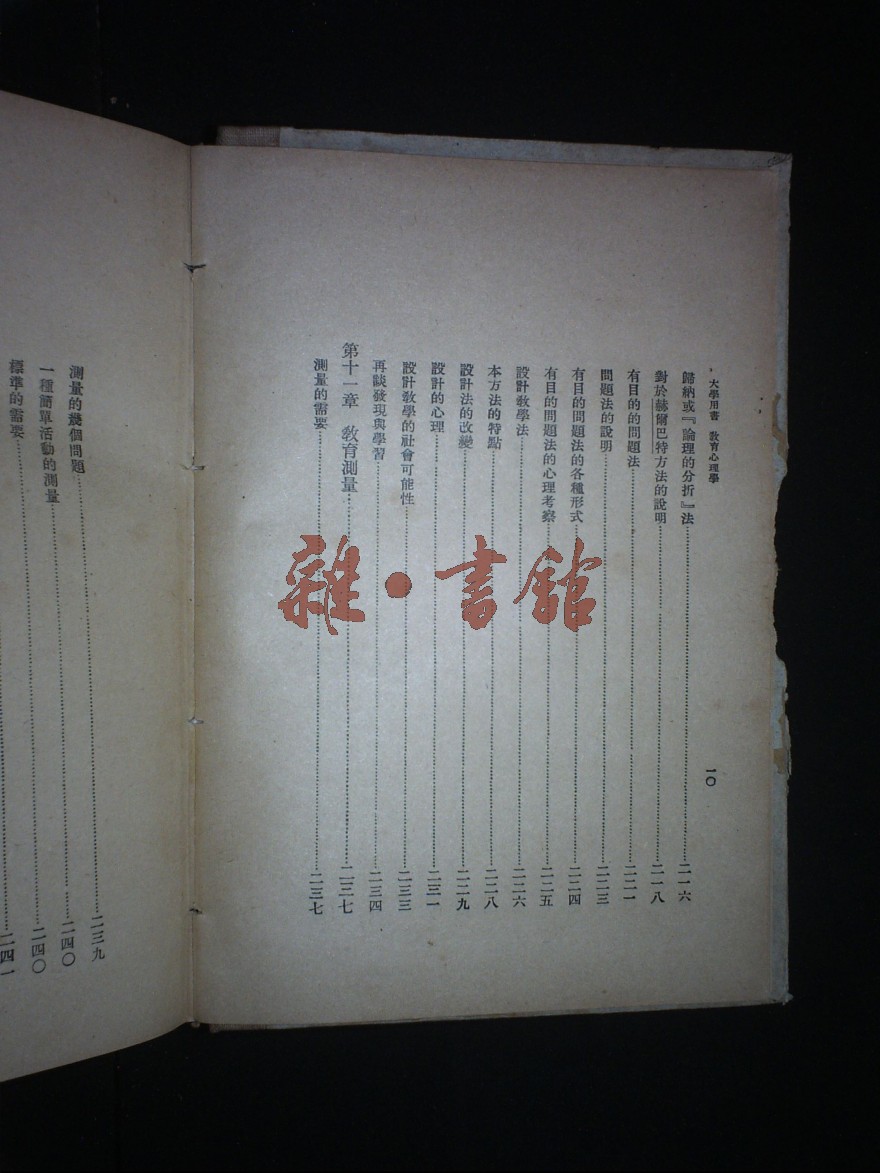 大學用書　教育心理學
一〇
歸納或『論理的分折』法……二一六
對於赫爾巴特方法的說明……二一八
有目的的問題法……二二一
問題法的說明……二二三
有目的問題法的各種形式……二二四
有目的問題法的心理考察……二二五
設計教學法……二二六
本方法的特點……二二八
設計法的改變……二二九
設計的心理……二三一
設計教學的社會可能性……二三三
再談發現與學習……二三四
第十一章　教育測量……二三七
測量的需要……二三七
測量的幾個問題……二三九
一種簡單活動的測量……二四〇
……二四〇
標準的需要……二四一
雜·書館